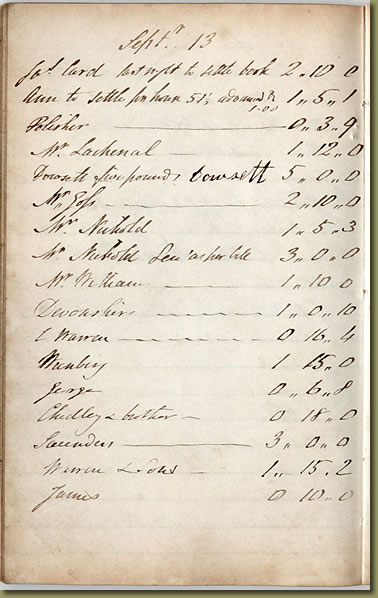 Septr. 13
Jas. Card last night to settle book 2,, 10 0
Ann to settle 51/2 advanced 1,, 5,, 1
1-0-0
Polisher 0,, 3,, 9
Mr. Lachenal 1,, 12,, 0
five pounds Dowsett 5,, 0,, 0
Mr. Goss 2,, 10,, 0
Mr. Nickold 1,, 5,, 3
Mr. Nickold Senr as per bill 3,, 0,, 0
Mr. William 1,, 10 0
Devonshire 1,, 0,, 10
E Warren 0 16,, 4
1 15,, 0
George 0,, 6,, 8
Chidley & brother 0 18,, 0
Saunders 3,, 0,, 0
Warren & Sons 1,, 15,, 2
James 0 10,, 0